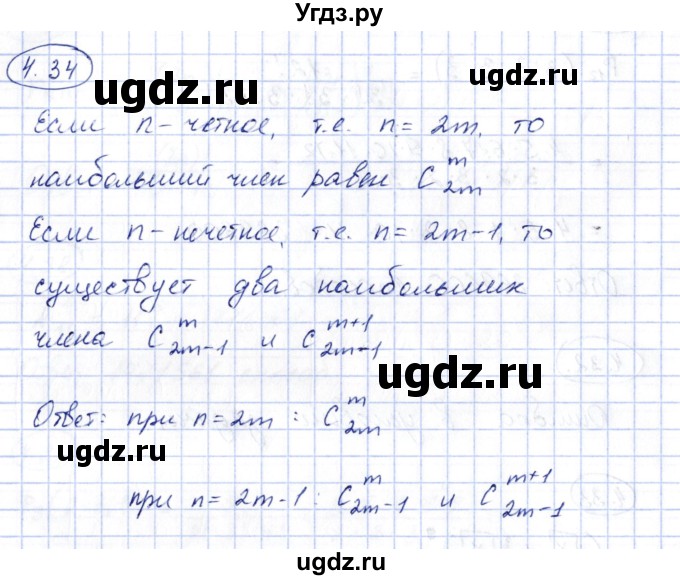 Угдз.ру
4.34
ugdz.ru ugdz.ru
Если n - четное, т.е. n = 2m, то
наибольший член равен C_{2m}^{m}
ugdz.ru
Если n - нечетное, т.е. n = 2m-1, то
существует два наибольших
члена C_{2m-1}^{m} и C_{2m-1}^{m+1}
ugdz.ru ugdz.ru
Ответ: при n = 2m : C_{2m}^{m}
ugdz.ru
при n = 2m-1 : C_{2m-1}^{m} и C_{2m-1}^{m+1}
ugdz.ru ugdz.ru